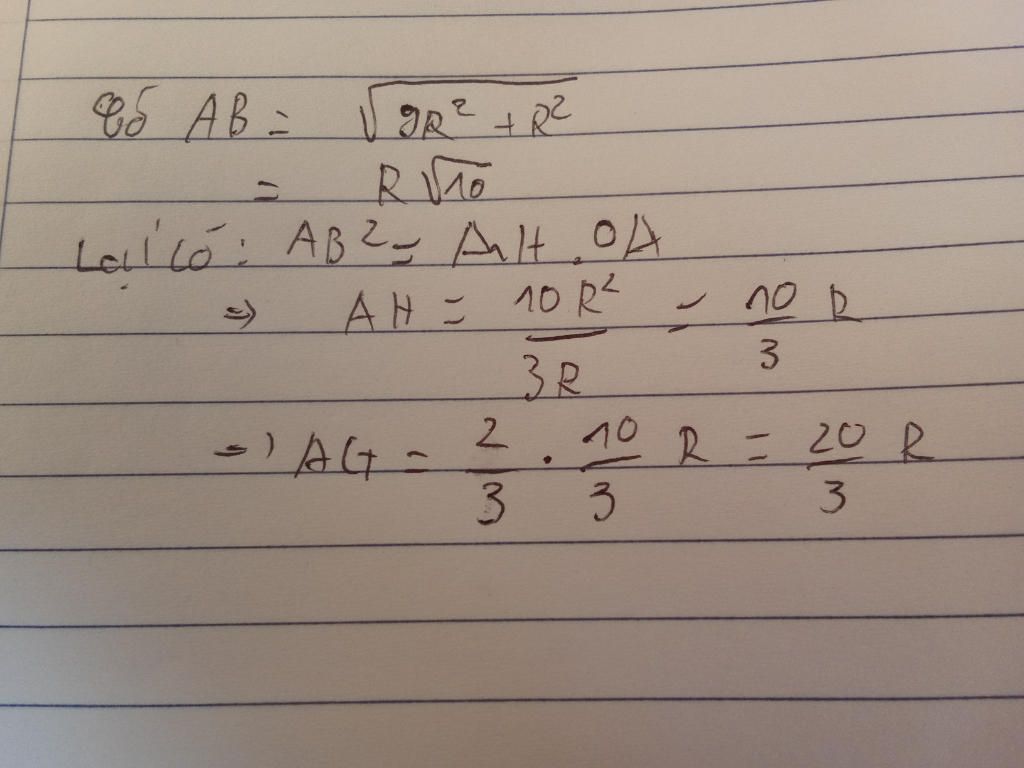 Có AB = √(9R² + R²)
= R√10
Lại có: AB² = AH . OA
=> AH = 10R²/3R = 10/3 R
=> AG = 2/3 . 10/3 R = 20/3 R